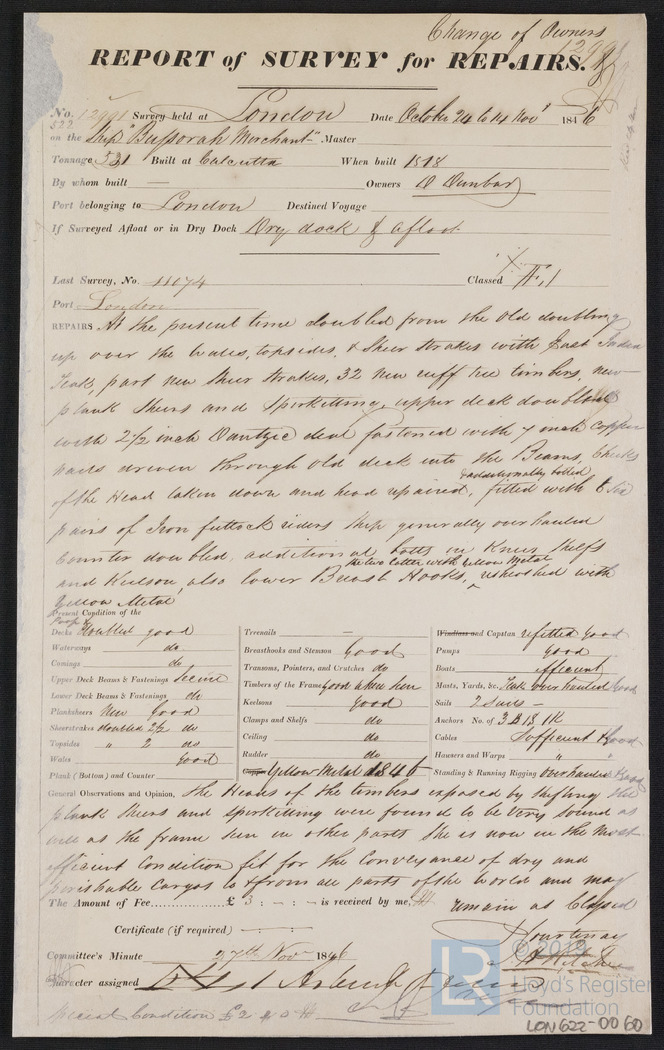 Change of Owners
12991
REPORT of SURVEY for REPAIRS.
No. 12991 Survey held at London Date October 24 to 14 Nov 1846
522
on the Ship "Bussorah Merchant" Master
Tonnage 531 Built at Calcutta When built 1818
By whom built — Owners D Dunbar
Port belonging to London Destined Voyage
If Surveyed Afloat or in Dry Dock Dry dock & afloat
Last Survey, No. 11074 Classed Æ.1
Port London
REPAIRS At the present time doubled from the old doubling
up over the wales, topsides, & Sheer Strakes with East India
Teak, part new Sheer Strakes, 32 new ruff tree timbers, new
plank Sheers and Spirkitting, upper deck doubled
with 2 1/2 inch Dantzic deal fastened with 7 inch Copper
nails driven through old deck into the Beams, Cheeks
& additionally bolted
of the Head taken down and head repaired, fitted with 6 Six
pairs of Iron futtock riders Ship generally overhauled
Counter doubled, additional bolts in Knees Shelfs
the two latter with Yellow Metal
and Keelson, also lower Breast Hooks, resheathed with
Yellow Metal
Present Condition of the
Poop &
Decks Doubled good
Waterways do
Comings do
Upper Deck Beams & Fastenings Secure
Lower Deck Beams & Fastenings do
Planksheers New Good
Sheerstrakes doubled 2 1/2 do
Topsides " 2 do
Wales good
Plank (Bottom) and Counter
Treenails —
Breasthooks and Stemson Good
Transoms, Pointers, and Crutches do
Timbers of the Frame Good when seen
Keelsons Good
Clamps and Shelfs do
Ceiling do
Rudder do
Copper Yellow Metal 1846
Windlass and Capstan refitted Good
Pumps Good
Boats efficient
Masts, Yards, &c. Teak overhauled Good
Sails 2 Suits —
Anchors No. of 3 B 1 S 1 K
Cables Sufficient Good
Hausers and Warps "
Standing & Running Rigging Overhauled Good
General Observations and Opinion, The Heads of the timbers exposed by shifting the
plank Sheers and Spirkitting were found to be very sound as
well as the frame seen in other parts She is now in the most
efficient Condition fit for the Conveyance of dry and
perishable Cargos to & from all parts of the World and may
remain as Classed
The Amount of Fee £ 3 : - : - is received by me,
Certificate (if required)
Courtenay
Committee's Minute 27th Novr 1846
Character assigned
Special Condition £2
LR
© 2019
Lloyd's Register
Foundation
LON622-0060